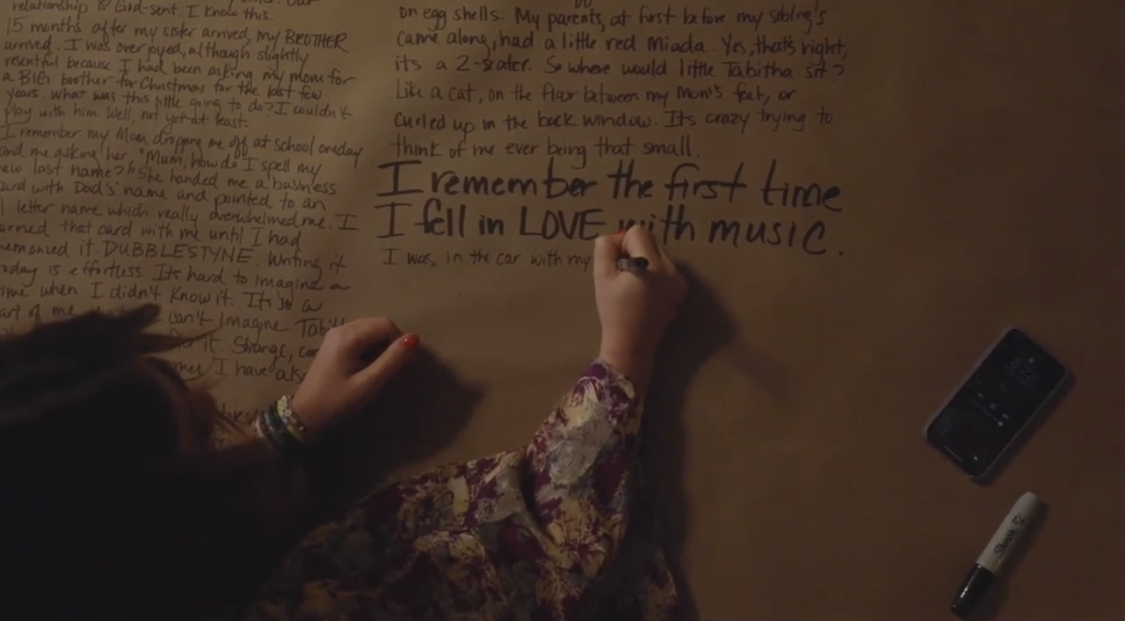 relationship is God-sent. I know this.
15 months after my sister arrived, my BROTHER
arrived. I was overjoyed, although slightly
resentful because I had been asking my mom for
a BIG brother for Christmas for the last few
years. What was this little going to do? I couldn't
play with him. Well, not yet at least.
I remember my Mom dropping me off at school oneday
and me asking her, "Mum, how do I spell my
new last name?" She handed me a business
card with Dad's name and pointed to an
11 letter name which really overwhelmed me. I
carried that card with me until I had
memorized it. DUBBLESTYNE. Writing it
today is effortless. Its hard to imagine a
time when I didn't know it. It's so a
part of me
can't imagine
it. Strange,
I have
on egg shells. My parents, at first before my sibling's
came along, had a little red Miada. Yes, that's right,
its a 2-seater. So where would little Tabitha sit?
Like a cat, on the floor between my Mom's feet, or
curled up in the back window. Its crazy trying to
think of me ever being that small.
I remember the first time
I fell in LOVE with music.
I was in the car with my
Sharpie